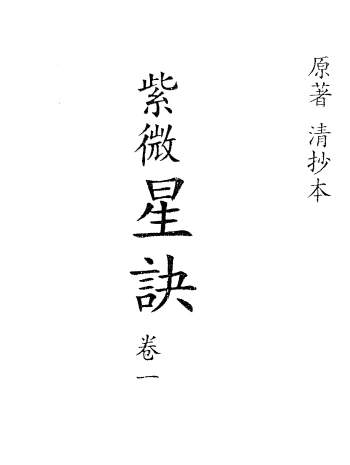 原著 清抄本
紫微星訣 卷一